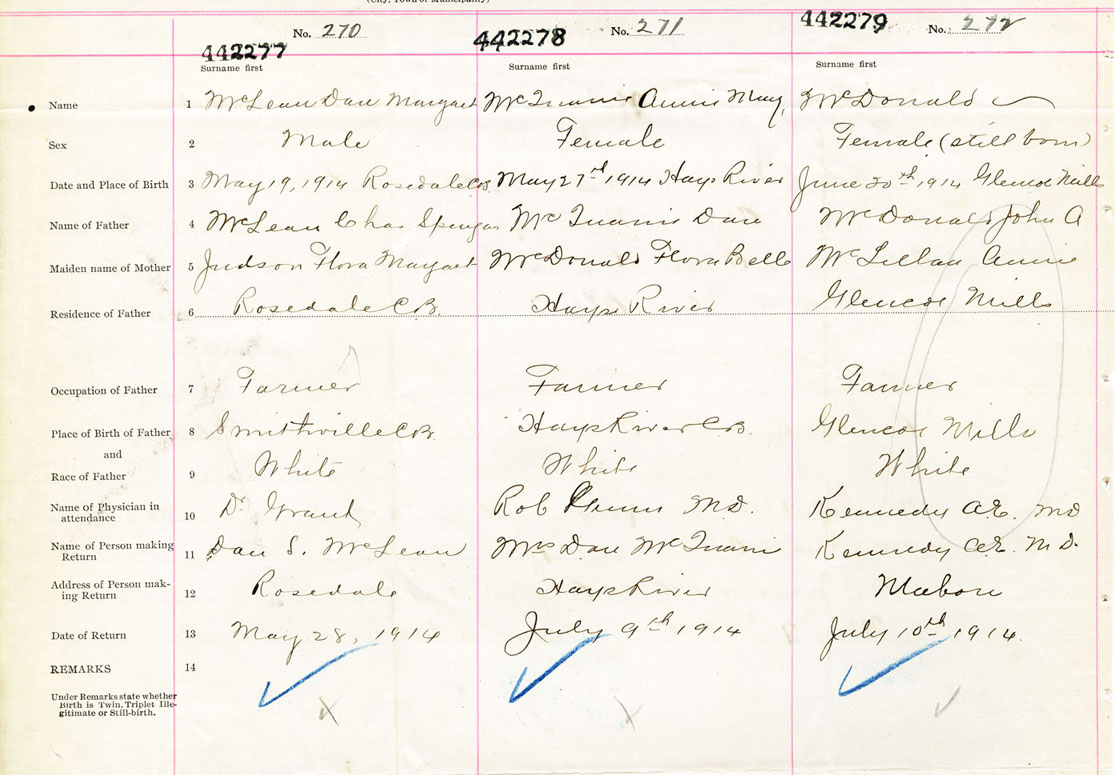 (City, Town or Municipality)
No. 270 No. 271 No. 272
442277 442278 442279
Surname first Surname first Surname first
Name 1 McLean Dan Margaret Annie May McDonald
Sex 2 Male Female Female (still born)
Date and Place of Birth 3 May 19, 1914 Rosedale C.B. May 27th 1914 Hays River June 30th 1914 Glencoe Mills
Name of Father 4 McLean Chas Dan McDonald John A
Maiden name of Mother 5 Judson Flora Margaret McDonald Flora Belle McLellan Annie
Residence of Father 6 Rosedale C.B. Hays River Glencoe Mills
Occupation of Father 7 Farmer Farmer Farmer
Place of Birth of Father 8 Smithville C.B. Hays River C.B. Glencoe Mills
and
Race of Father 9 White White White
Name of Physician in
attendance 10 Dr Grant Rob MD. Kennedy A.E. MD
Name of Person making
Return 11 Dan S. McLean Mrs Dan Kennedy A.E. M.D.
Address of Person mak-
ing Return 12 Rosedale Hays River Mabou
Date of Return 13 May 28, 1914 July 9th 1914 July 10th 1914.
REMARKS 14
Under Remarks state whether
Birth is Twin, Triplet Ille-
gitimate or Still-birth.